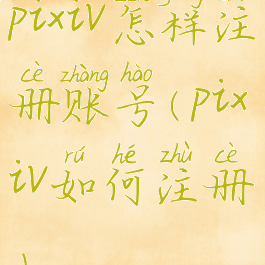 pixiv怎样注
cè zhàng hào
册账号(pix
rú hé zhù cè
iv如何注册
)